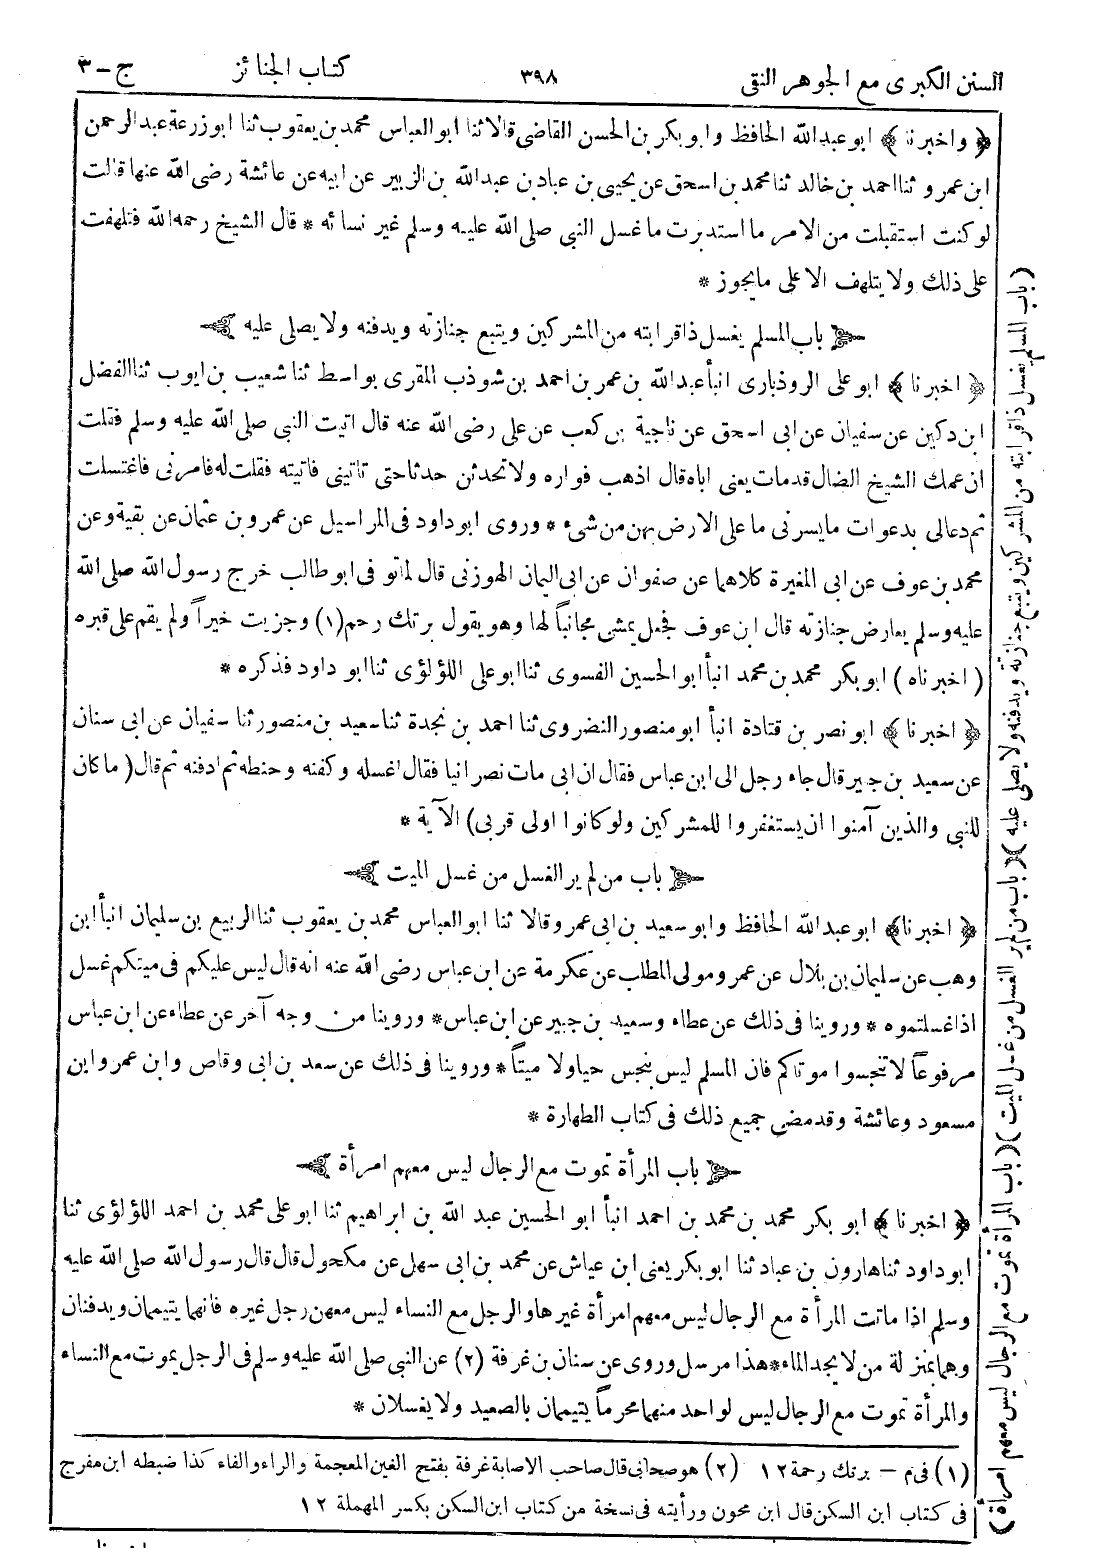 السنن الكبرى مع الجوهر النقى ٣٩٨ كتاب الجنائز ج-٣
﴿ واخبرنا ﴾ ابو عبد الله الحافظ وابو بكر بن الحسن القاضى قالا ثنا ابو العباس محمد بن يعقوب ثنا ابو زرعة عبد الرحمن
ابن عمرو ثنا احمد بن خالد ثنا محمد بن اسحق عن يحيى بن عباد بن عبد الله بن الزبير عن ابيه عن عائشة رضى الله عنها قالت
لو كنت استقبلت من الامر ما استدبرت ما غسل النبى صلى الله عليه وسلم غير نسائه * قال الشيخ رحمه الله فتلهفت
على ذلك ولا يتلهف الا على ما يجوز *
باب المسلم يغسل ذا قرابته من المشركين ويتبع جنازته ويدفنه ولا يصلى عليه
﴿ اخبرنا ﴾ ابو على الروذبارى انبأ عبد الله بن عمر بن احمد بن شوذب المقرى بواسط ثنا شعيب بن ايوب ثنا الفضل
ابن دكين عن سفيان عن ابى اسحق عن ناجية بن كعب عن على رضى الله عنه قال اتيت النبى صلى الله عليه وسلم فقلت
ان عمك الشيخ الضال قد مات يعنى اباه قال اذهب فواره ولا تحدثن حدثا حتى تاتينى فاتيته فقلت له فامرنى فاغتسلت
ثم دعالى بدعوات ما يسرنى ما على الارض بهن من شىء * وروى ابو داود فى المراسيل عن عمرو بن عثمان عن بقية وعن
محمد بن عوف عن ابى المغيرة كلاهما عن صفوان عن ابى اليمان الهوزنى قال لما توفى ابو طالب خرج رسول الله صلى الله
عليه وسلم يعارض جنازته قال ابن عوف فجعل يمشى مجانباً لها وهو يقول برتك رحم (١) وجزيت خيراً ولم يقم على قبره
( اخبرناه ) ابو بكر محمد بن محمد انبأ ابو الحسين الفسوى ثنا ابو على اللؤلؤى ثنا ابو داود فذكره *
﴿ اخبرنا ﴾ ابو نصر بن قتادة انبأ ابو منصور النضروى ثنا احمد بن نجدة ثنا سعيد بن منصور ثنا سفيان عن ابى سنان
عن سعيد بن جبير قال جاء رجل الى ابن عباس فقال ان ابى مات نصرانيا فقال اغسله وكفنه وحنطه ثم ادفنه ثم قال ( ما كان
للنبى والذين آمنوا ان يستغفروا للمشركين ولو كانوا اولى قربى ) الآية *
باب من لم ير الغسل من غسل الميت
﴿ اخبرنا ﴾ ابو عبد الله الحافظ وابو سعيد بن ابى عمرو قالا ثنا ابو العباس محمد بن يعقوب ثنا الربيع بن سليمان انبأ ابن
وهب عن سليمان بن بلال عن عمرو مولى المطلب عن عكرمة عن ابن عباس رضى الله عنه انه قال ليس عليكم فى ميتكم غسل
اذا غسلتموه * وروينا فى ذلك عن عطاء وسعيد بن جبير عن ابن عباس * وروينا من وجه آخر عن عطاء عن ابن عباس
مرفوعاً لا تنجسوا موتاكم فان المسلم ليس بنجس حيا ولا ميتاً * وروينا فى ذلك عن سعد بن ابى وقاص وابن عمر وابن
مسعود وعائشة وقد مضى جميع ذلك فى كتاب الطهارة *
باب المرأة تموت مع الرجال ليس معهم امرأة
﴿ اخبرنا ﴾ ابو بكر محمد بن محمد بن احمد انبأ ابو الحسين عبد الله بن ابراهيم ثنا ابو على محمد بن احمد اللؤلؤى ثنا
ابو داود ثنا هارون بن عباد ثنا ابو بكر يعنى ابن عياش عن محمد بن ابى سهل عن مكحول قال قال رسول الله صلى الله عليه
وسلم اذا ماتت المرأة مع الرجال ليس معهم امرأة غيرها والرجل مع النساء ليس معهن رجل غيره فانهما يتيممان ويدفنان
وهما بمنزلة من لا يجد الماء * هذا مرسل وروى عن سنان بن غرفة (٢) عن النبى صلى الله عليه وسلم فى الرجل يموت مع النساء
والمرأة تموت مع الرجال ليس لواحد منهما محرماً يتيممان بالصعيد ولا يغسلان *
(١) فى م - برتك رحمة ١٢ (٢) هو صحابى قال صاحب الاصابة غرفة بفتح الغين المعجمة والراء والفاء كذا ضبطه ابن مفرج
فى كتاب ابن السكن قال ابن محون ورأيته فى نسخة من كتاب ابن السكن بكسر المهملة ١٢
( باب المسلم يغسل ذا قرابته من المشركين ويتبع جنازته ويدفنه ولا يصلى عليه )( باب من لم ير الغسل من غسل الميت )( باب المرأة تموت مع الرجال ليس معهم امرأة )